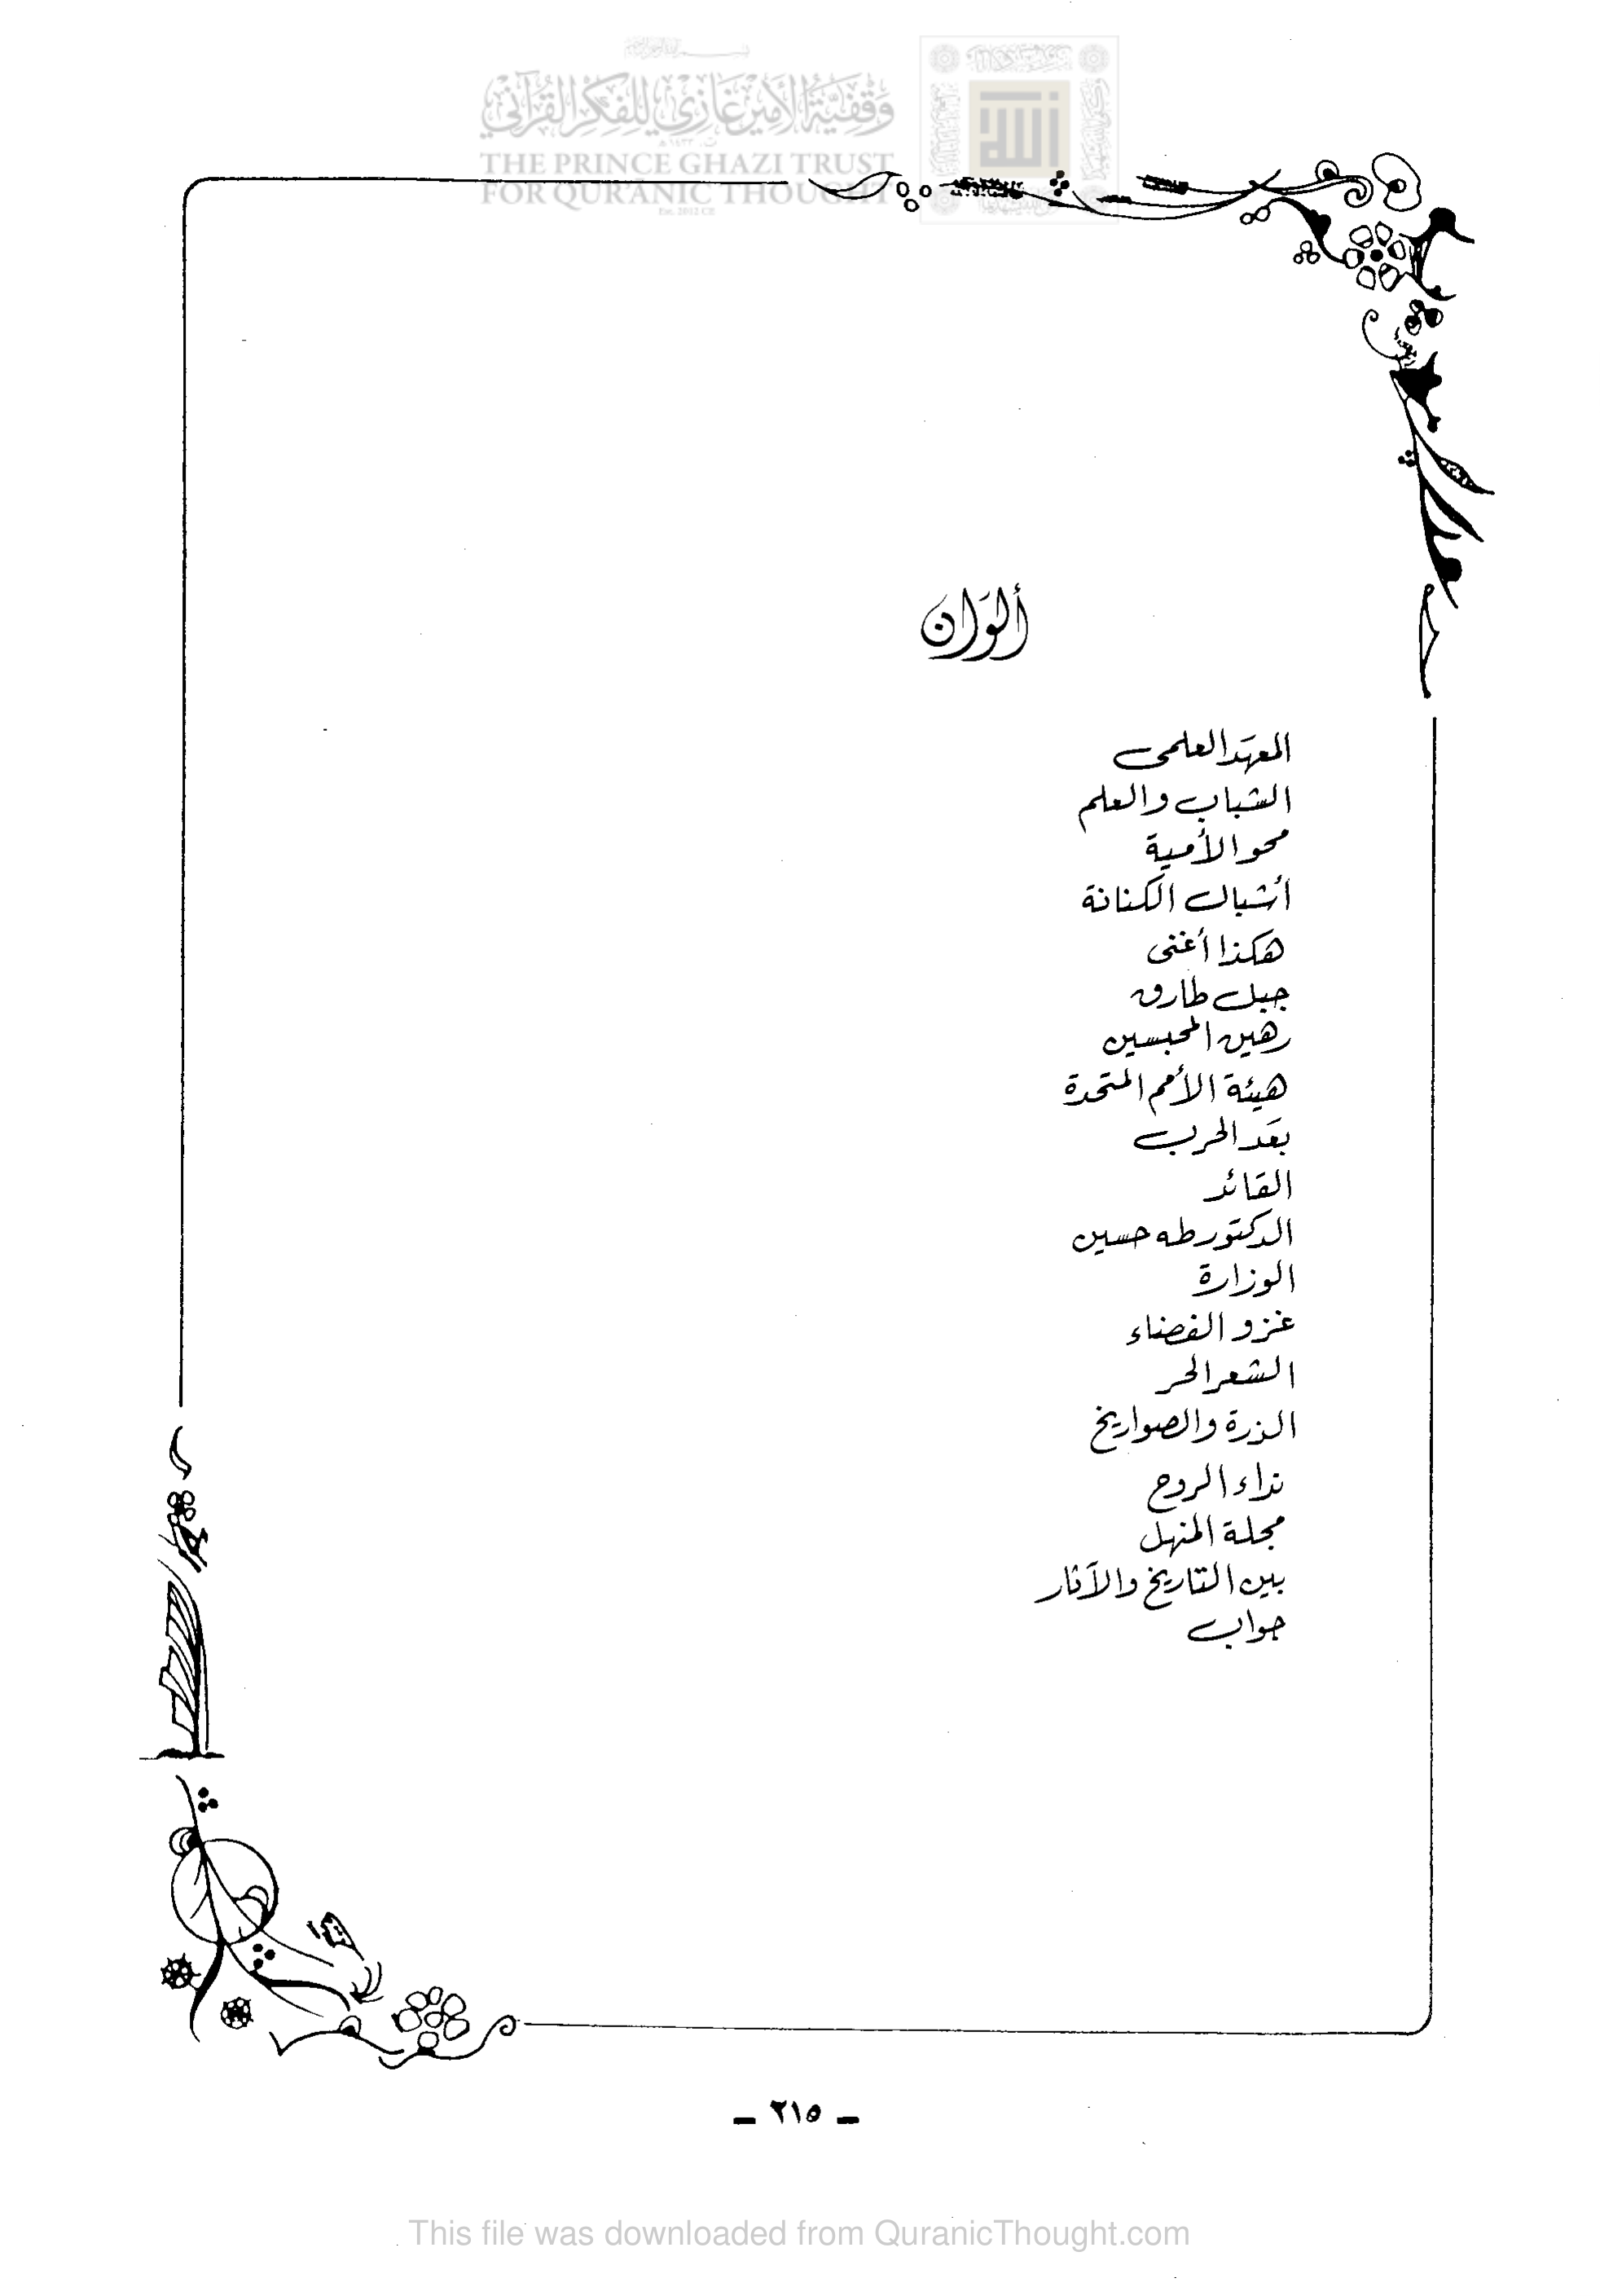 وقفية الأمير غازي للفكر القرآني
THE PRINCE GHAZI TRUST
FOR QUR'ANIC THOUGHT
ألوَان
المعهَد العلمى
الشباب والعلم
محو الأمية
أشبال الكنانة
هكذا أغنى
جبل طارق
رهين المحبسين
هيئة الأمم المتحدة
بعَد الحرب
القائد
الدكتور طه حسين
الوزارة
غزو الفضاء
الشعر الحر
الذرة والصواريخ
نداء الروح
مجلة المنهل
بين التاريخ والآثار
جواب
- ٢١٥ -
This file was downloaded from QuranicThought.com